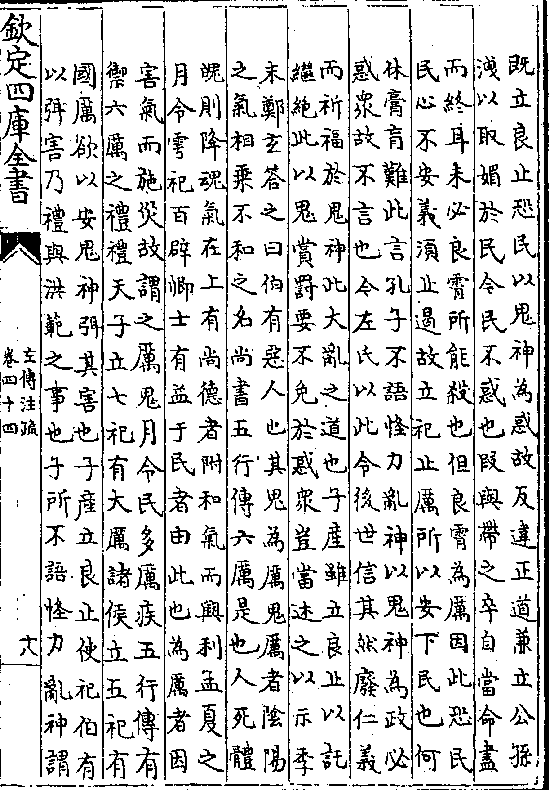 既立良止恐民以鬼神為惑故反違正道兼立公孫
洩以取媚於民令民不惑也叚與帶之卒自當命盡
而終耳未必良霄所能殺也但良霄為厲因此恐民
民心不安義須止遏故立祀止厲所以安下民也何
休膏肓難此言孔子不語怪力亂神以鬼神為政必
惑衆故不言也今左氏以此令後世信其然廢仁義
而祈福於鬼神此大亂之道也子産雖立良止以託
繼絶此以鬼賞罰要不免於惑衆豈當述之以示季
末鄭玄答之曰伯有惡人也其鬼為厲鬼厲者陰陽
之氣相乗不和之名尚書五行傳六厲是也人死體
魄則降魂氣在上有尚德者附和氣而興利孟夏之
月令雩祀百辟卿士有益于民者由此也為厲者因
害氣而施災故謂之厲鬼月令民多厲疾五行傳有
禦六厲之禮禮天子立七祀有大厲諸侯立五祀有
國厲欲以安鬼神弭其害也子產立良止使祀伯有
以弭害乃禮與洪範之事也子所不語怪力亂神謂
欽定四庫全書
左傳注疏
卷四十四
十八